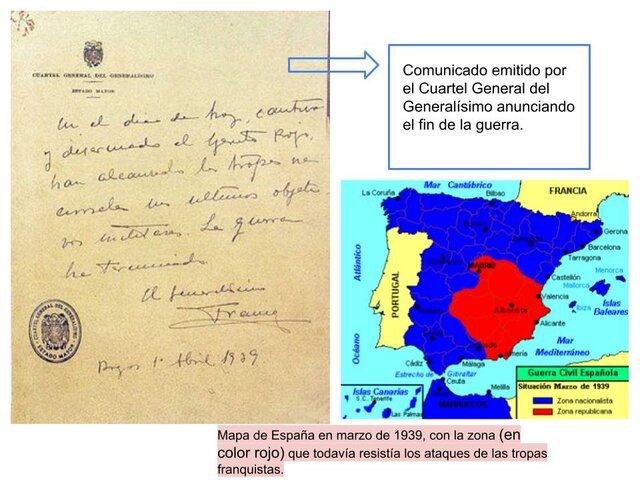 CUARTEL GENERAL DEL GENERALÍSIMO
ESTADO MAYOR
En el día de hoy, cautivo
y desarmado el Ejército Rojo,
han alcanzado las tropas na-
cionales sus últimos objeti-
vos militares. La guerra
ha terminado.
El Generalísimo
Franco
Burgos 1º Abril 1939
CUARTEL GENERAL DEL GENERALISIMO
ESTADO MAYOR
Comunicado emitido por
el Cuartel General del
Generalísimo anunciando
el fin de la guerra.
Mar Cantábrico
FRANCIA
La Coruña
Bilbao
Andorra
Gerona
Barcelona
Tarragona
MADRID
Castellón
Menorca
Mallorca
Valencia
Ibiza
Islas
Baleares
Albacete
Alicante
PORTUGAL
Atlántico
Océano
Mar
Mediterráneo
Almería
Málaga
Cádiz
Estrecho de Gibraltar
Ceuta
Melilla
MARRUECOS
Islas Canarias
S.C. Tenerife
Las Palmas
Guerra Civil Española
Situación Marzo de 1939
Zona nacionalista
Zona republicana
Mapa de España en marzo de 1939, con la zona (en
color rojo) que todavía resistía los ataques de las tropas
franquistas.